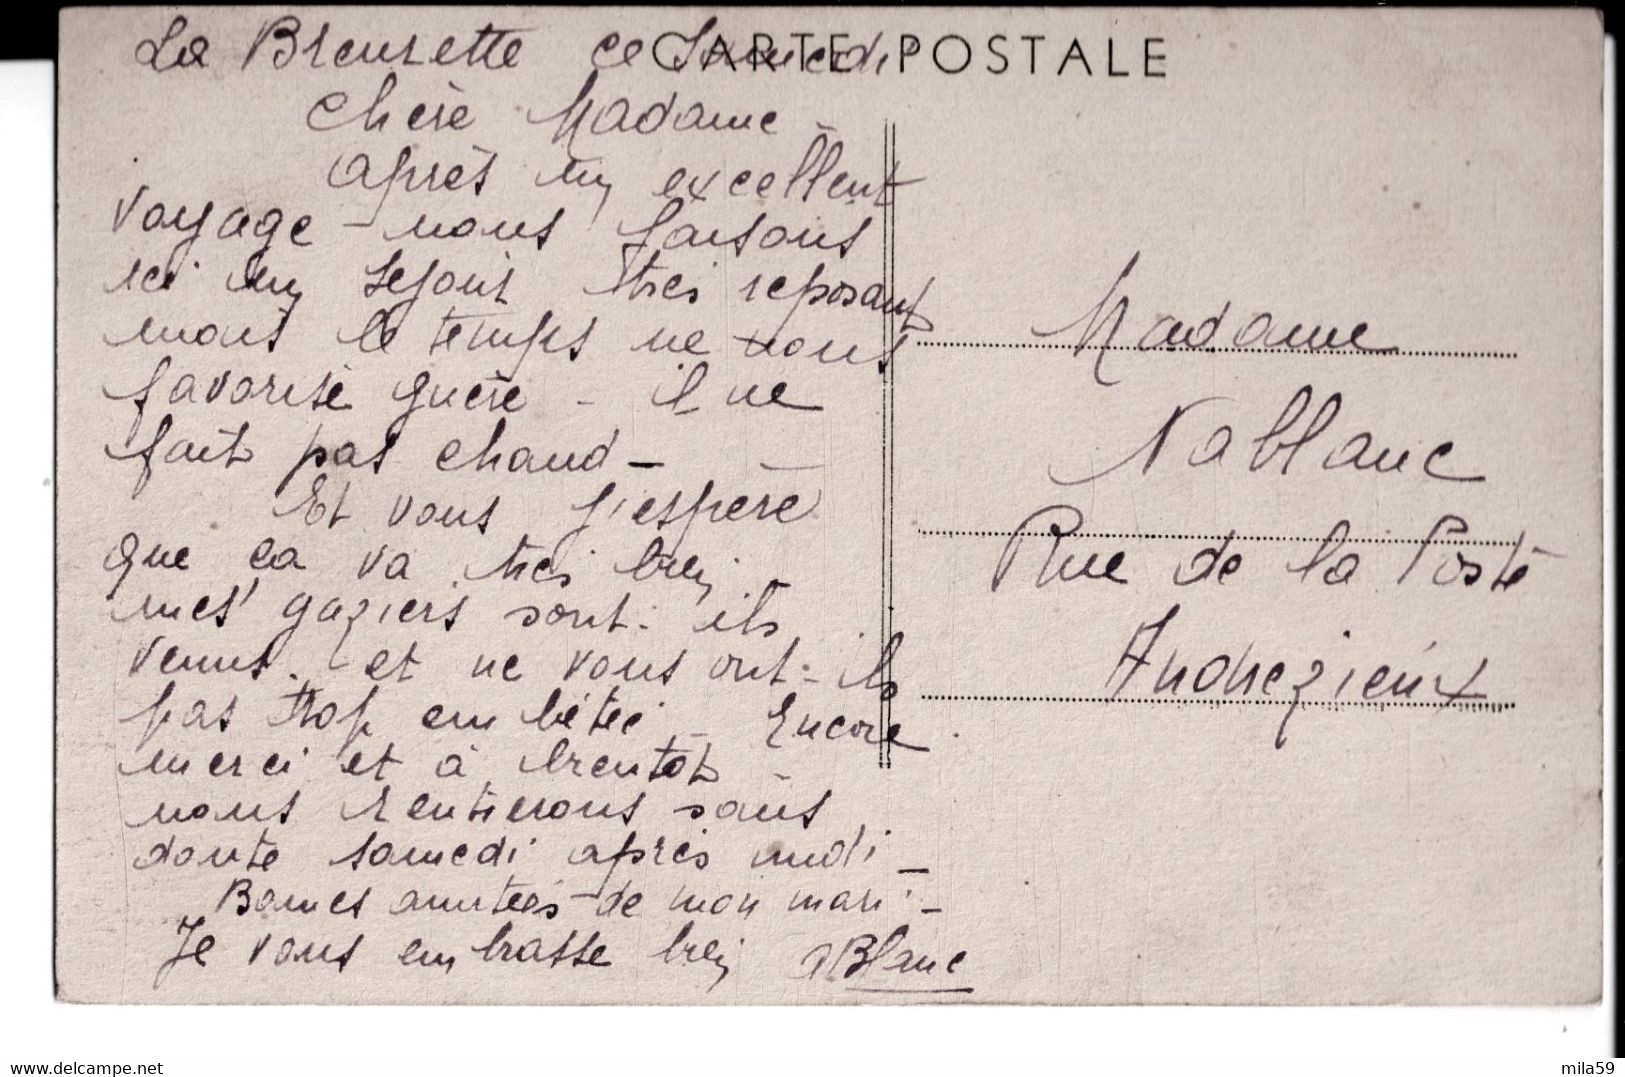 La Breurette ce Samedi
CARTE POSTALE
Chère Madame -
Après un excellent
voyage - nous faisons
ici un sejour très reposant
mais le temps ne nous
favorise guère - il ne
fait pas chaud -
Et vous j'espère
que ça va très bien -
mes gaziers sont-ils
venus - et ne vous ont-ils
pas trop embêtée - Encore
merci et à bientôt -
nous rentrerons sans
doute samedi après midi -
Bonnes amitiés de mon mari -
Je vous embrasse bien
ABlanc
Madame
Nablanc
Rue de la Poste
Andrezieux
www.delcampe.net
mila59